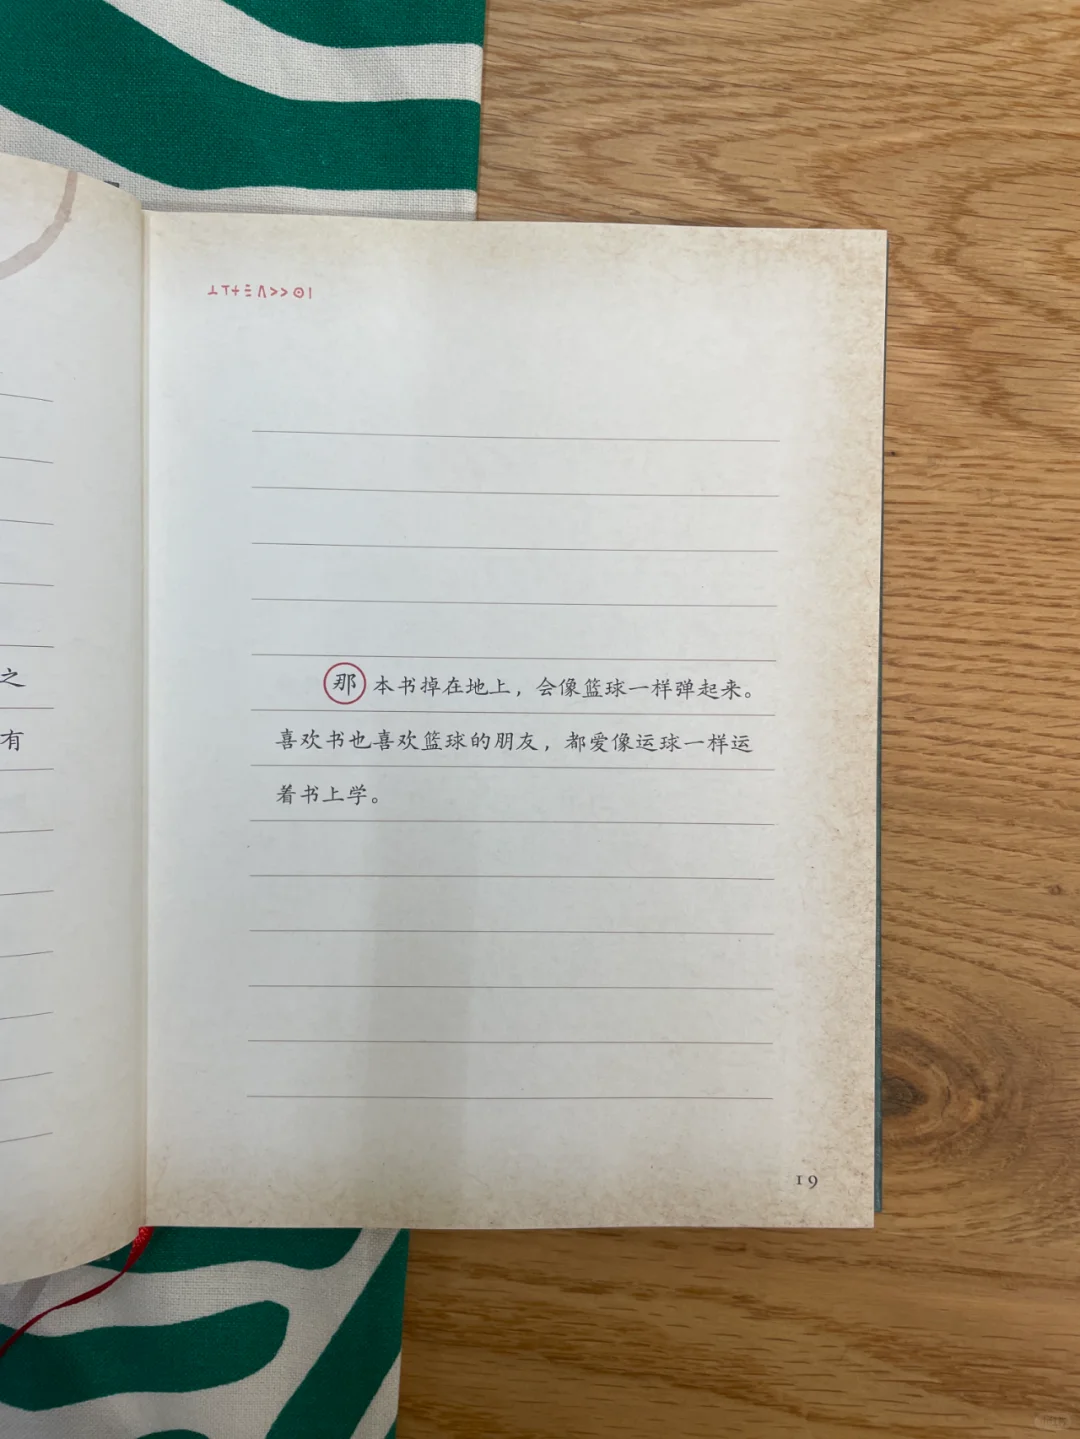 之
有
那本书掉在地上，会像篮球一样弹起来。
喜欢书也喜欢篮球的朋友，都爱像运球一样运
着书上学。
19